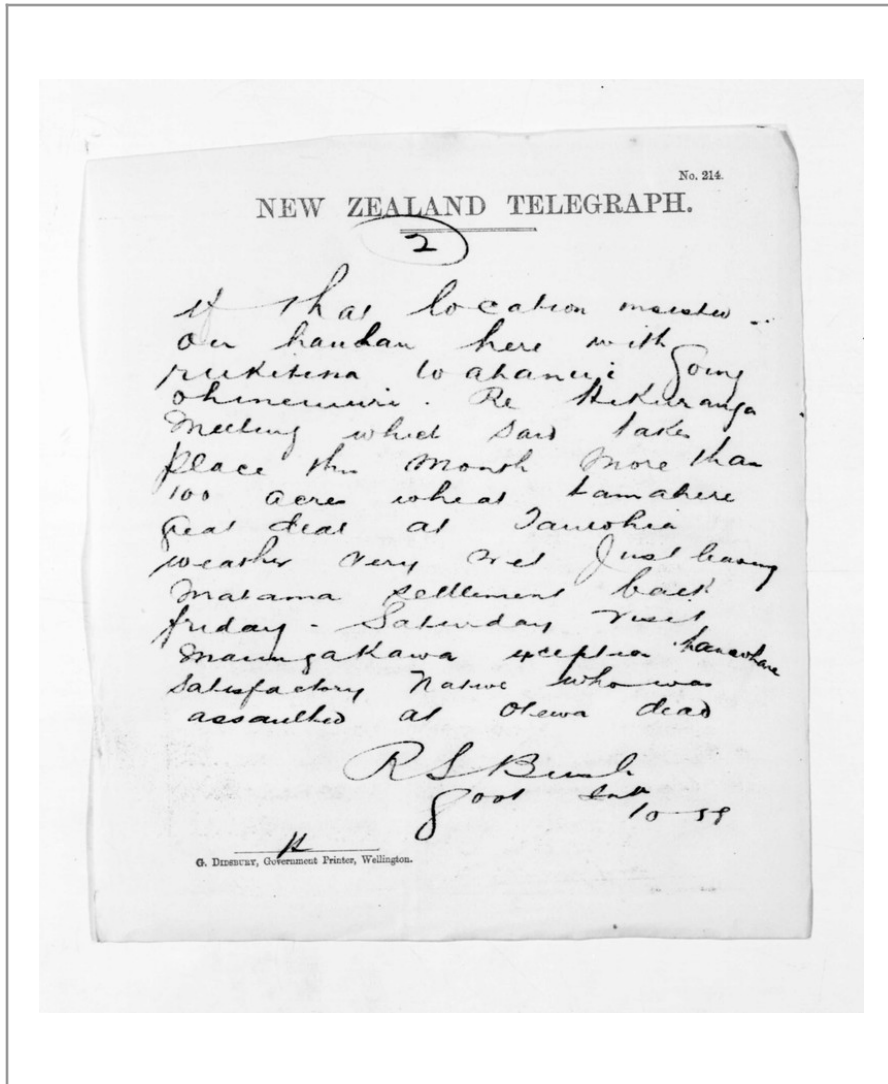 No. 214.
NEW ZEALAND TELEGRAPH.
2
If that location
Our hauhau here with
going
Ohinemuri. Re Hikurangi
Meeting which said takes
place this month More than
100 acres wheat Tamahere
great deal at
weather very wet Just leaving
Matama settlement back
friday - Saturday visit
Maungakawa exception
satisfactory Native who was
assaulted at Otewa dead
R S Bush
Govt
10-
G. DIDSBURY, Government Printer, Wellington.